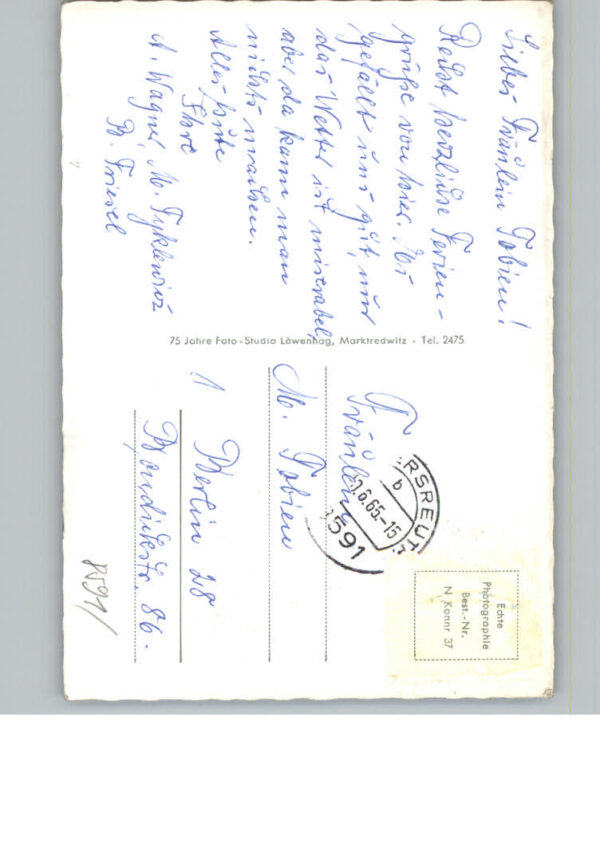 Liebes Fräulein Tobien!
Recht herzliche Ferien-
grüße von hier. Es
gefällt uns gut, nur
das Wetter ist miserabel,
aber da kann man
nichts machen.
Alles Gute
Ihre
A. Wagner, M. Tyklewicz
B. Friesel
75 Jahre Foto-Studio Löwenhag, Marktredwitz · Tel. 2475
Fräulein
M. Tobien
1 Berlin 28
86.
RSREUT
b
.6.65.-15
8591
Echte
Photographie
Best.-Nr.
N Konnr 37
8591/